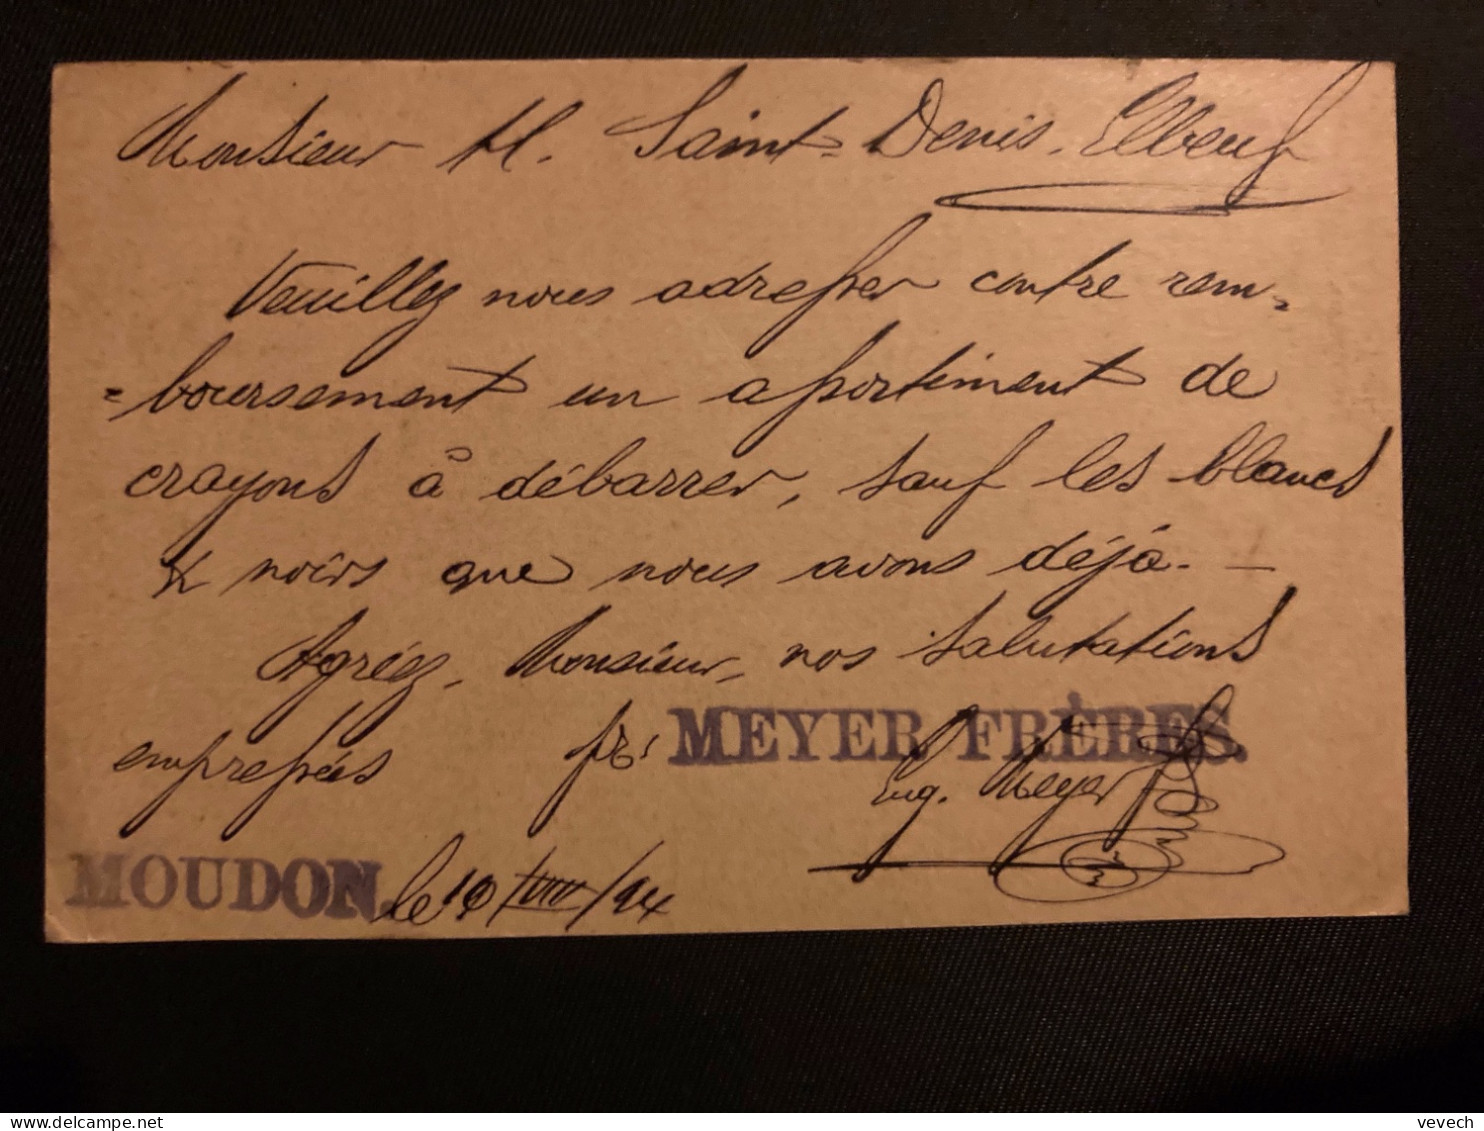 Monsieur H. Saint-Denis. Elbeuf
Veuillez nous adresser contre rem=
=boursement un assortiment de
crayons à débarrer, sauf les blancs
& noirs que nous avons déjà. —
Agréez, Monsieur, nos salutations
empressées pr. MEYER FRÈRES.
Eug. Meyer
MOUDON. le 10 VIII/94
vevech